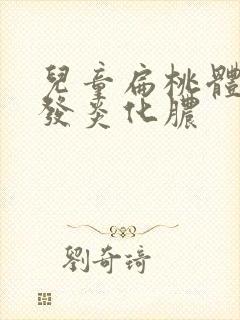 兒童扁桃體
發炎化膿
劉奇琦